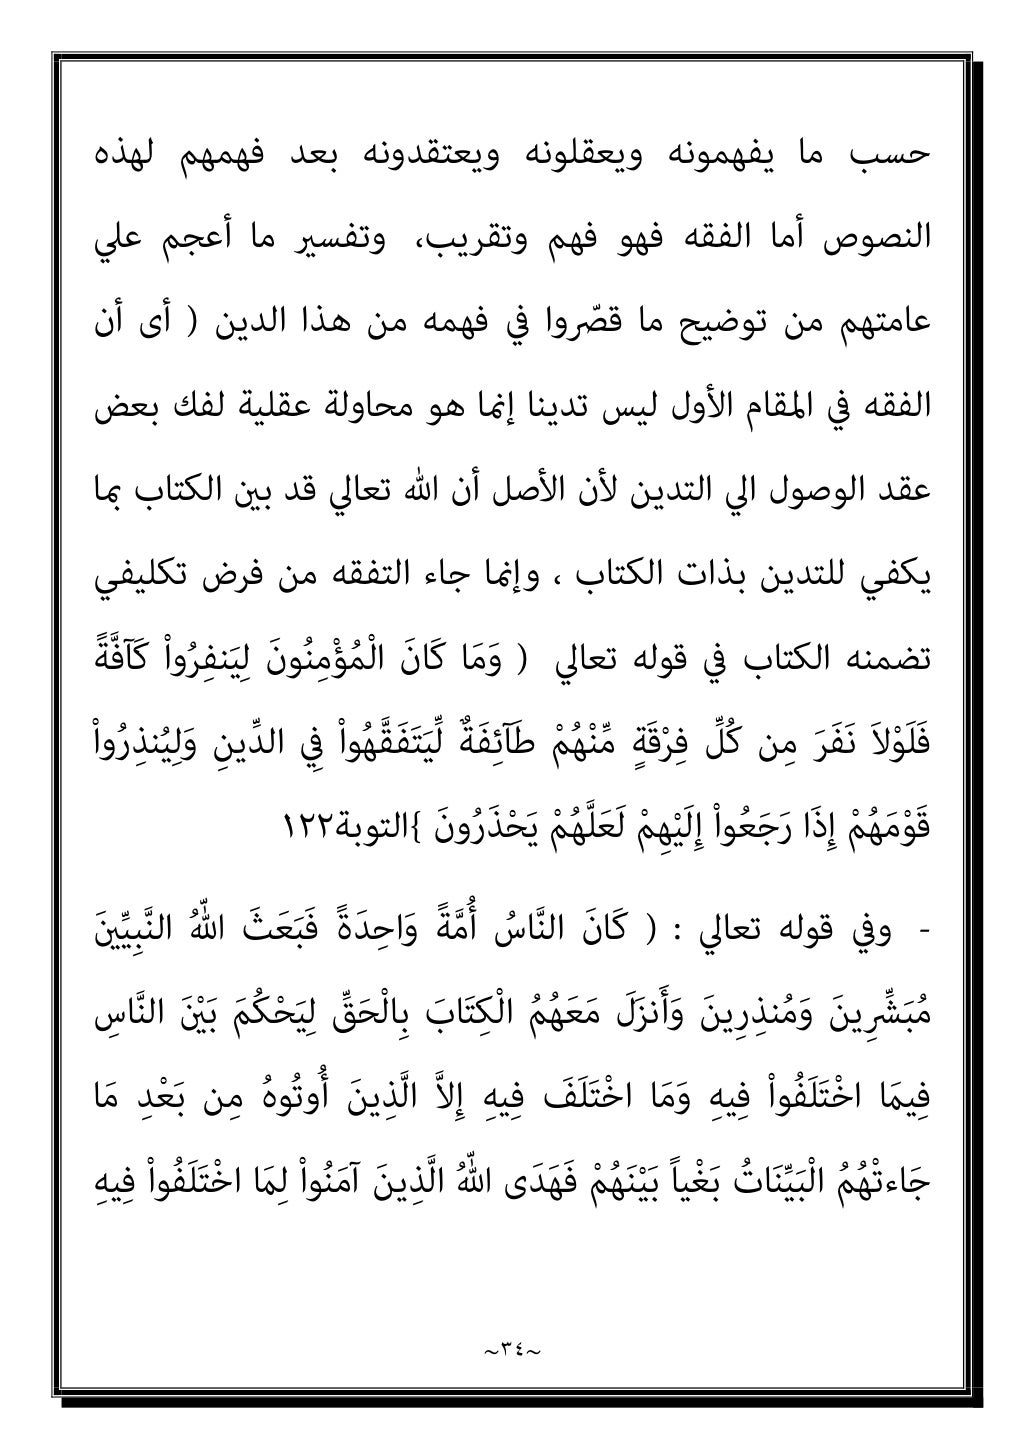 حسب ما يفهمونه ويعقلونه ويعتقدونه بعد فهمهم لهذه
النصوص أما الفقه فهو فهم وتقريب، وتفسير ما أعجم علي
عامتهم من توضيح ما قصّروا في فهمه من هذا الدين ( أى أن
الفقه في المقام الأول ليس تدينا إنما هو محاولة عقلية لفك بعض
عقد الوصول الي التدين لأن الأصل أن الله تعالي قد بين الكتاب بما
يكفي للتدين بذات الكتاب ، وإنما جاء التفقه من فرض تكليفي
تضمنه الكتاب في قوله تعالي ( وَمَا كَانَ الْمُؤْمِنُونَ لِيَنفِرُواْ كَآفَّةً
فَلَوْلاَ نَفَرَ مِن كُلِّ فِرْقَةٍ مِّنْهُمْ طَآئِفَةٌ لِّيَتَفَقَّهُواْ فِي الدِّينِ وَلِيُنذِرُواْ
قَوْمَهُمْ إِذَا رَجَعُواْ إِلَيْهِمْ لَعَلَّهُمْ يَحْذَرُونَ }التوبة١٢٢
- وفي قوله تعالي : ( كَانَ النَّاسُ أُمَّةً وَاحِدَةً فَبَعَثَ اللّهُ النَّبِيِّينَ
مُبَشِّرِينَ وَمُنذِرِينَ وَأَنزَلَ مَعَهُمُ الْكِتَابَ بِالْحَقِّ لِيَحْكُمَ بَيْنَ النَّاسِ
فِيمَا اخْتَلَفُواْ فِيهِ وَمَا اخْتَلَفَ فِيهِ إِلاَّ الَّذِينَ أُوتُوهُ مِن بَعْدِ مَا
جَاءتْهُمُ الْبَيِّنَاتُ بَغْياً بَيْنَهُمْ فَهَدَى اللّهُ الَّذِينَ آمَنُواْ لِمَا اخْتَلَفُواْ فِيهِ
~٣٤~